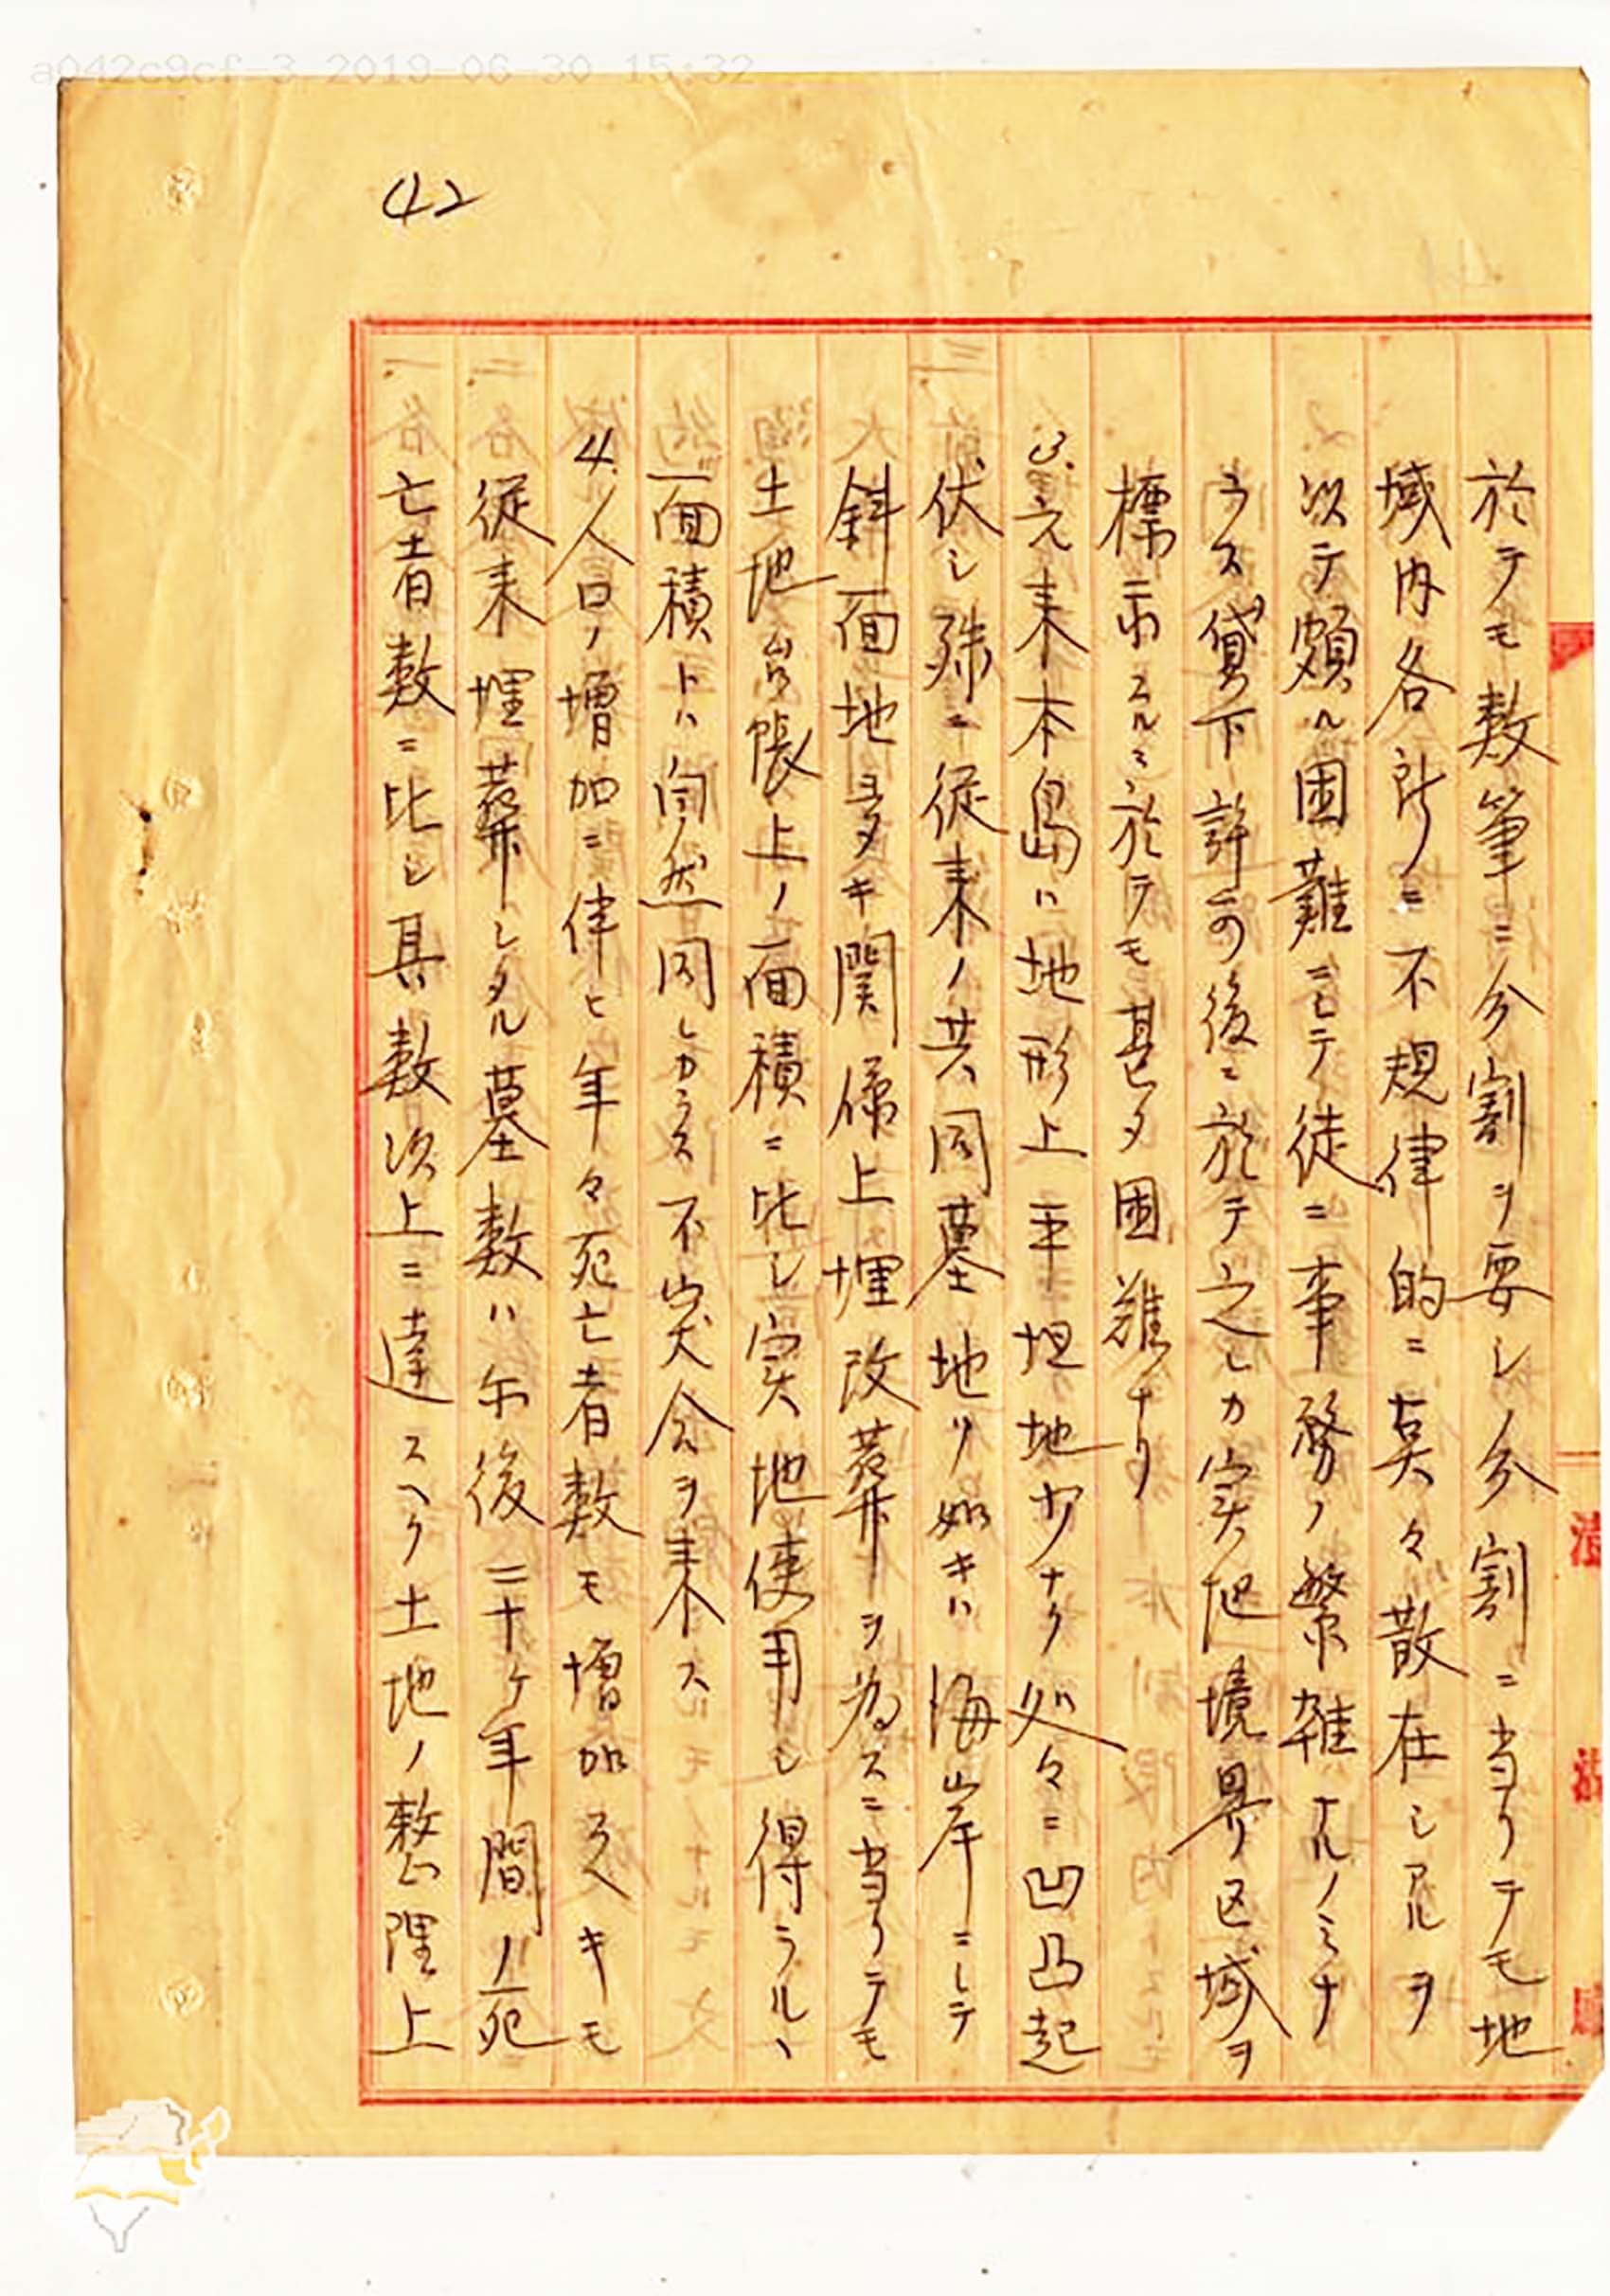 a042c9cf-3 2019-06-30 15:32
42
於テモ数筆ニ分割ヲ要シ分割ニ当リテモ地
域内各所ニ不規律的ニ莫々散在シアルヲ
以テ頗ル困難ニシテ徒ニ事務ノ繁雑ナルノミナ
ラス貸下許可後ニ於テ之レカ実地境界区域ヲ
標示スルニ於テモ甚タ困難ナリ
3. 元来本島ハ地形上平坦地少ナク処々ニ凹凸起
伏シ殊ニ従来ノ共同墓地ノ如キハ海岸ニシテ
斜面地多キ関係上埋改葬ヲ為スニ当リテモ
土地台帳上ノ面積ニ比シ実地使用シ得ラルヽ
面積トハ自然同シカラス不突合ヲ来ス
4. 人口ノ増加ニ伴ヒ年々死亡者数モ増加スヘキモ
従来埋葬シタル墓数ハ今後二十ケ年間ノ死
亡者数ニ比シ其数次上ニ達スヘク土地ノ整理上
澎湖廳